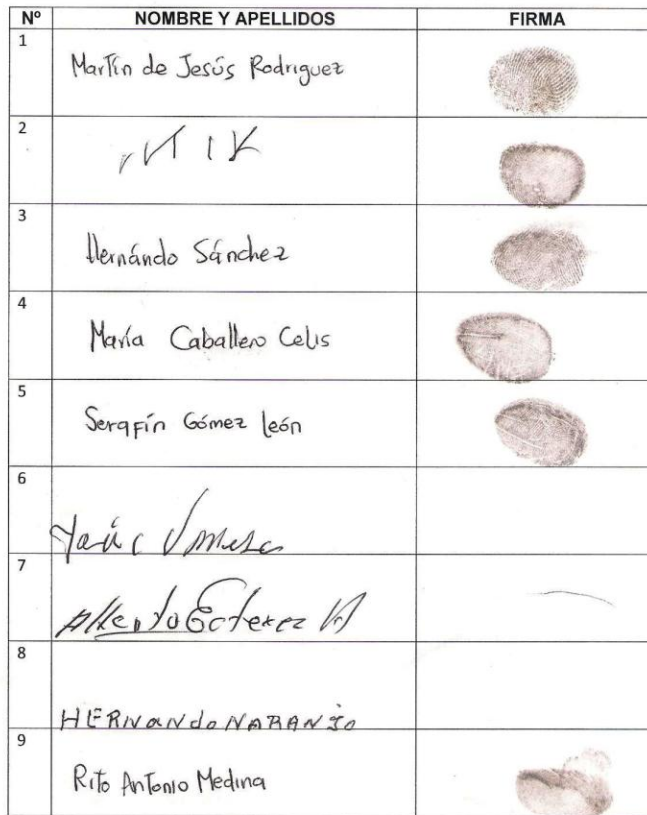 Nº NOMBRE Y APELLIDOS FIRMA
1
Martín de Jesús Rodriguez
2
3
Hernándo Sánchez
4
María Caballero Celis
5
Serafín Gómez León
6
7
Alberto
8
HERNANdo NARANJO
9
Rito Antonio Medina